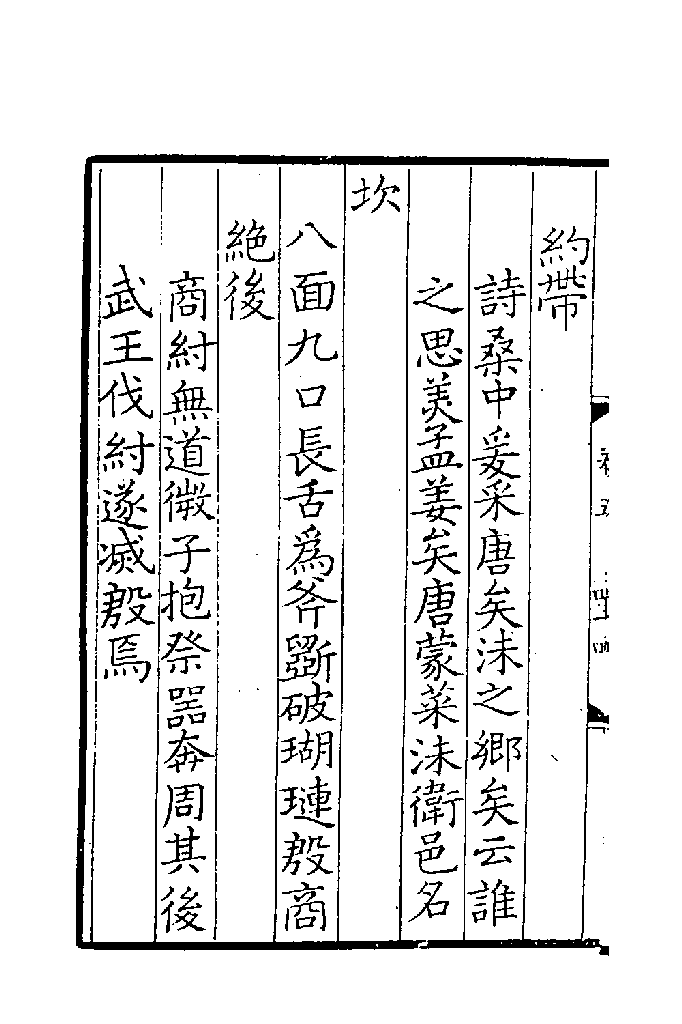 約帶
詩桑中爰采唐矣沬之鄉矣云誰
之思美孟姜矣唐蒙菜沬衛邑名
坎
八面九口長舌爲斧斲破瑚璉殷商
絶後
商紂無道微子抱祭器奔周其後
武王伐紂遂滅殷焉